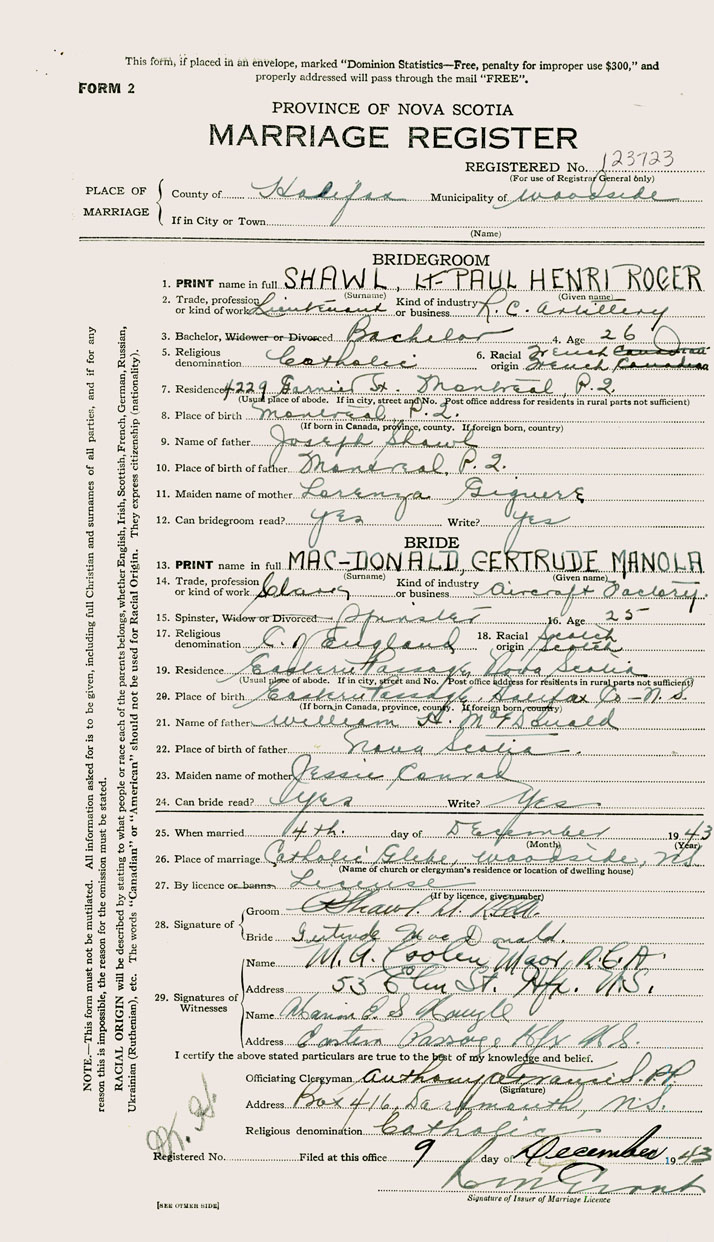 This form, if placed in an envelope, marked "Dominion Statistics—Free, penalty for improper use $300," and
properly addressed will pass through the mail "FREE".
FORM 2
PROVINCE OF NOVA SCOTIA
MARRIAGE REGISTER
REGISTERED No. 123723
(For use of Registrar General only)
PLACE OF MARRIAGE
County of Halifax Municipality of Woodside
If in City or Town
(Name)
BRIDEGROOM
1. PRINT name in full SHAWL, LT PAUL HENRI ROGER
(Surname) (Given name)
2. Trade, profession or kind of work Lieutenant Kind of industry or business R.C. Artillery
3. Bachelor, Widower or Divorced Bachelor 4. Age 26
5. Religious denomination Catholic 6. Racial origin French Canadian
French Canadian
7. Residence 4229 Garnier St. Montreal, P.Q.
(Usual place of abode. If in city, street and No. Post office address for residents in rural parts not sufficient)
8. Place of birth Montreal, P.Q.
(If born in Canada, province, county. If foreign born, country)
9. Name of father Joseph Shawl
10. Place of birth of father Montreal, P.Q.
11. Maiden name of mother Lorenza Giguere
12. Can bridegroom read? Yes Write? Yes
BRIDE
13. PRINT name in full MAC-DONALD, GERTRUDE MANOLA
(Surname) (Given name)
14. Trade, profession or kind of work Kind of industry or business Aircraft Factory.
15. Spinster, Widow or Divorced Spinster 16. Age 25
17. Religious denomination C. of England 18. Racial origin Scotch
Scotch
19. Residence Eastern Passage, Nova Scotia
(Usual place of abode. If in city, street and No. Post office address for residents in rural parts not sufficient)
20. Place of birth Eastern Passage, Halifax Co - N.S.
(If born in Canada, province, county. If foreign born, country)
21. Name of father William H. McDonald
22. Place of birth of father Nova Scotia.
23. Maiden name of mother Jessie Conrad
24. Can bride read? Yes Write? Yes
25. When married 4th. day of December 1943
(Month) (Year)
26. Place of marriage Catholic Glebe, Woodside, N.S.
(Name of church or clergyman's residence or location of dwelling house)
27. By licence or banns License
(If by licence, give number)
28. Signature of
Groom Shawl
Bride Gertrude MacDonald.
29. Signatures of Witnesses
Name M. A. Coolen Major, R.C.A.
Address 53 Elm St. Hfx. N.S.
Name Marion E. S
Address Eastern Passage Hfx N.S.
I certify the above stated particulars are true to the best of my knowledge and belief.
Officiating Clergyman Anthony P.P.
(Signature)
Address Box 416, Dartmouth, N.S.
Religious denomination Catholic
Registered No. Filed at this office 9 day of December 1943
Grant
Signature of Issuer of Marriage Licence
[SEE OTHER SIDE]
NOTE.—This form must not be mutilated. All information asked for is to be given, including full Christian and surnames of all parties, and if for any
reason this is impossible, the reason for the omission must be stated.
RACIAL ORIGIN will be described by stating to what people or race each of the parents belongs, whether English, Irish, Scottish, French, German, Russian,
Ukrainian (Ruthenian), etc. The words "Canadian" or "American" should not be used for Racial Origin. They express citizenship (nationality).